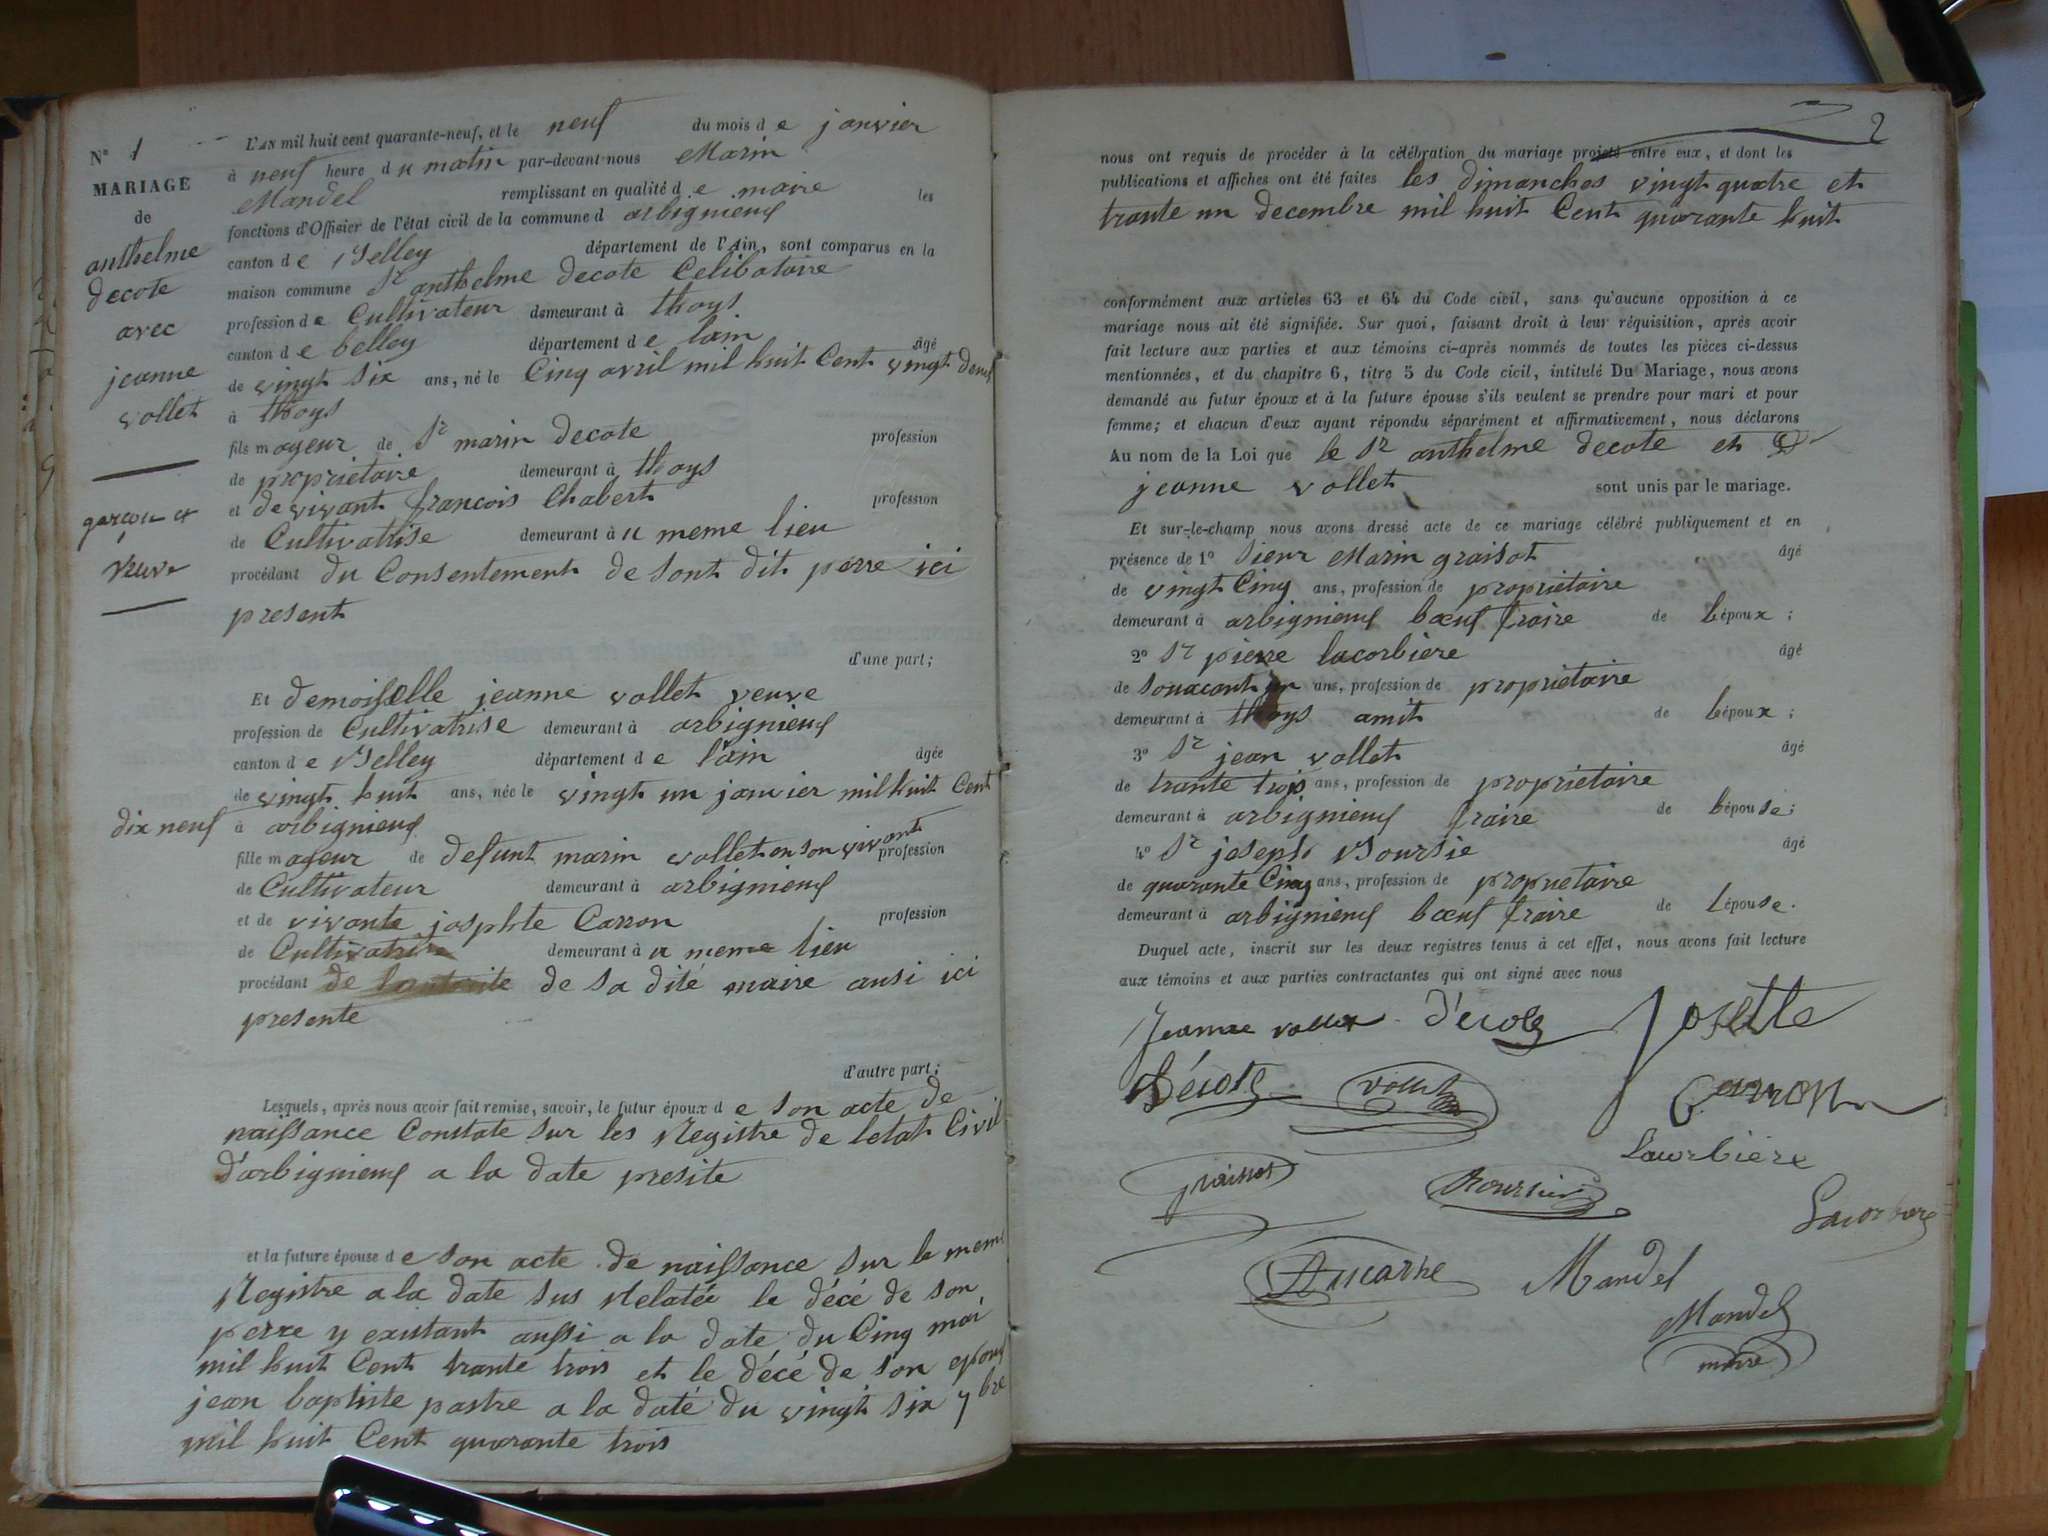 N° 1
MARIAGE
de
anthelme
decote
avec
jeanne
vollet
garçon et
veuve
L'AN mil huit cent quarante-neuf, et le neuf du mois de janvier
à neuf heure du matin par-devant nous Marin
Mandel remplissant en qualité de maire les
fonctions d'Offisier de l'état civil de la commune d arbignieuf
canton de Belley département de l'Ain, sont comparus en la
maison commune Sr anthelme decote Celibataire
profession de Cultivateur demeurant à thoys
canton de belley département de lain âgé
de vingt six ans, né le Cinq avril mil huit Cent vingt deux
à thoys
fils mageur de Sr marin decote profession
de proprietaire demeurant à thoys
et de vivant francois Chabert profession
de Cultivatrise demeurant àu meme lieu
procédant du Consentement de sont dit perre ici
present
d'une part;
Et demoiselle jeanne vollet veuve
profession de Cultivatrise demeurant à arbignieuf
canton de Belley département de l'ain âgée
de vingt huit ans, née le vingt un janvier mil huit Cent
dix neuf à arbignieuf
fille mageur de defunt marin vollet en son vivant profession
de Cultivateur demeurant à arbignieuf
et de vivante josphte Carron profession
de Cultivatrise demeurant àu meme lieu
procédant de lautorite de sa dité maire ausi ici
presente
d'autre part;
Lesquels, après nous avoir fait remise, savoir, le futur époux de son acte de
naissance Constate sur les Registre de letat Civil
d'arbignieuf a la date presite
et la future épouse de son acte de naissance sur le meme
Registre a la date sus Relatée le décé de son
perre y existant aussi a la date du Cinq mai
mil huit Cent trante trois et le décé de son epoux
jean baptiste pastre a la daté du vingt six 7bre
mil huit Cent quarante trois
2
nous ont requis de procéder à la célébration du mariage projeté entre eux, et dont les
publications et affiches ont été faites les dimanches vingt quatre et
trante un decembre mil huit Cent quarante huit
conformément aux articles 63 et 64 du Code civil, sans qu'aucune opposition à ce
mariage nous ait été signifiée. Sur quoi, faisant droit à leur réquisition, après avoir
fait lecture aux parties et aux témoins ci-après nommés de toutes les pièces ci-dessus
mentionnées, et du chapitre 6, titre 5 du Code civil, intitulé Du Mariage, nous avons
demandé au futur époux et à la future épouse s'ils veulent se prendre pour mari et pour
femme; et chacun d'eux ayant répondu séparément et affirmativement, nous déclarons
Au nom de la Loi que le Sr anthelme decote et
jeanne vollet sont unis par le mariage.
Et sur-le-champ nous avons dressé acte de ce mariage célébré publiquement et en
présence de 1° Sieur Marin graisot âgé
de vingt Cinq ans, profession de proprietaire
demeurant à arbignieuf bœuf fraire de lépoux;
2° Sr pierre lacorbiere âgé
de souacant un ans, profession de proprietaire
demeurant à thoys amit de lépoux;
3° Sr jean vollet âgé
de trante trois ans, profession de proprietaire
demeurant à arbignieuf fraire de lépouse;
4° Sr joseph Boursie âgé
de quarante Cinq ans, profession de proprietaire
demeurant à arbignieuf bœuf fraire de Lépouse.
Duquel acte, inscrit sur les deux registres tenus à cet effet, nous avons fait lecture
aux témoins et aux parties contractantes qui ont signé avec nous
Jeanne vollet Décote Josette
Décote vollet Carron
Lacorbiere
graissot Boursier
Lacorbiere
Ducarre Mandel
Mandel
maire